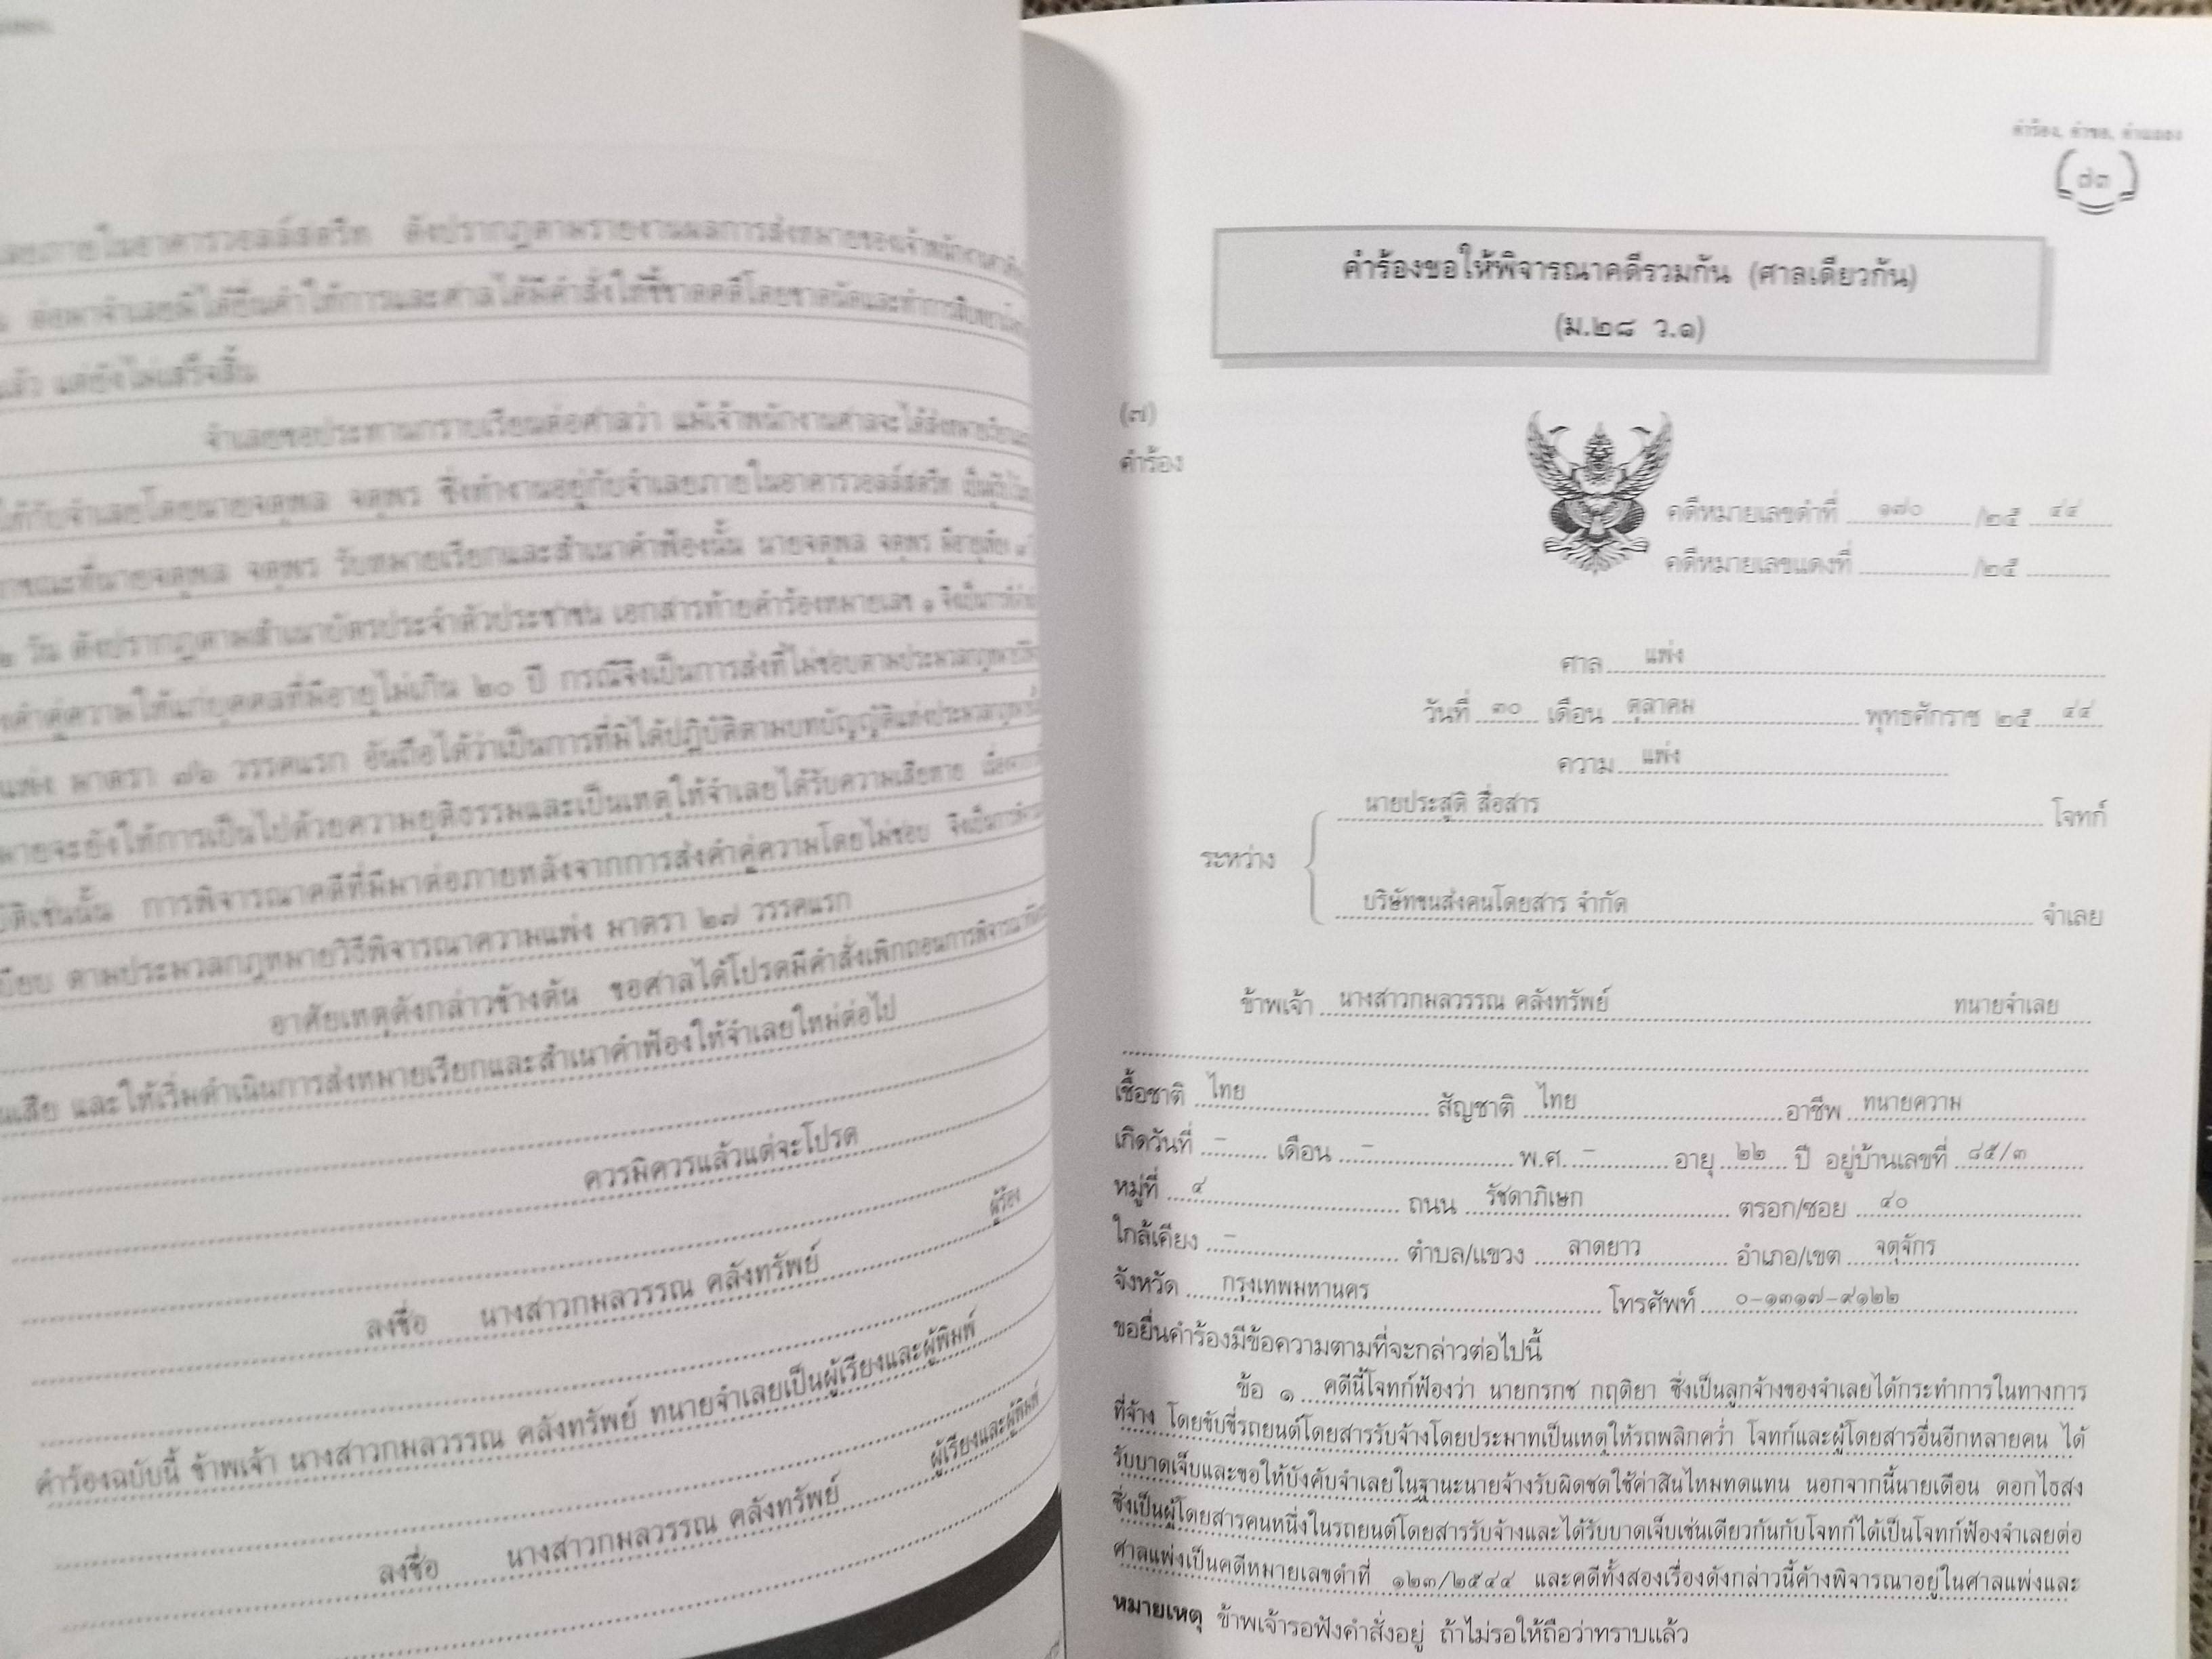 แล้ว แต่ยังไม่เสร็จสิ้น
จำเลยขอประทานกราบเรียนต่อศาลว่า แม้เจ้าพนักงานศาลจะได้ส่งหมายเรียก
ให้กับจำเลยโดยนายจตุพล จตุพร ซึ่งทำงานอยู่กับจำเลยภายในอาคารวอลล์สตรีท
ขณะที่นายจตุพล จตุพร รับหมายเรียกและสำเนาคำฟ้องนั้น นายจตุพล จตุพร มีอายุเพียง
๒ วัน ดังปรากฏตามสำเนาบัตรประจำตัวประชาชน เอกสารท้ายคำร้องหมายเลข ๑
คำคู่ความให้แก่บุคคลที่มีอายุไม่เกิน ๒๐ ปี กรณีจึงเป็นการส่งที่ไม่ชอบตามประมวลกฎหมาย
แพ่ง มาตรา ๗๖ วรรคแรก อันถือได้ว่าเป็นการที่มิได้ปฏิบัติตามบทบัญญัติแห่งประมวลกฎหมายนี้
หมายจะยังให้การเป็นไปด้วยความยุติธรรมและเป็นเหตุให้จำเลยได้รับความเสียหาย
บัติเช่นนั้น การพิจารณาคดีที่มีมาต่อภายหลังจากการส่งคำคู่ความโดยไม่ชอบ
เบียบ ตามประมวลกฎหมายวิธีพิจารณาความแพ่ง มาตรา ๒๗ วรรคแรก
อาศัยเหตุดังกล่าวข้างต้น ขอศาลได้โปรดมีคำสั่งเพิกถอนการพิจารณา
นเสีย และให้เริ่มดำเนินการส่งหมายเรียกและสำเนาคำฟ้องให้จำเลยใหม่ต่อไป
ควรมิควรแล้วแต่จะโปรด
ผู้ร้อง
ลงชื่อ นางสาวกมลวรรณ คลังทรัพย์
คำร้องฉบับนี้ ข้าพเจ้า นางสาวกมลวรรณ คลังทรัพย์ ทนายจำเลยเป็นผู้เรียงและผู้พิมพ์
ผู้เรียงและผู้พิมพ์
ลงชื่อ นางสาวกมลวรรณ คลังทรัพย์
คำร้อง, คำขอ, คำแถลง
๗๓
คำร้องขอให้พิจารณาคดีรวมกัน (ศาลเดียวกัน)
(ม.๒๘ ว.๑)
(๗)
คำร้อง
คดีหมายเลขดำที่ ๑๗๐ /๒๕ ๔๔
คดีหมายเลขแดงที่ /๒๕
ศาล แพ่ง
วันที่ ๓๐ เดือน ตุลาคม พุทธศักราช ๒๕ ๔๔
ความ แพ่ง
นายประสูติ สื่อสาร โจทก์
ระหว่าง
บริษัทขนส่งคนโดยสาร จำกัด จำเลย
ข้าพเจ้า นางสาวกมลวรรณ คลังทรัพย์ ทนายจำเลย
เชื้อชาติ ไทย สัญชาติ ไทย อาชีพ ทนายความ
เกิดวันที่ – เดือน – พ.ศ. – อายุ ๒๒ ปี อยู่บ้านเลขที่ ๘๕/๓
หมู่ที่ ๔ ถนน รัชดาภิเษก ตรอก/ซอย ๔๐
ใกล้เคียง – ตำบล/แขวง ลาดยาว อำเภอ/เขต จตุจักร
จังหวัด กรุงเทพมหานคร โทรศัพท์ ๐-๑๓๑๗-๙๑๒๒
ขอยื่นคำร้องมีข้อความตามที่จะกล่าวต่อไปนี้
ข้อ ๑ คดีนี้โจทก์ฟ้องว่า นายกรกช กฤติยา ซึ่งเป็นลูกจ้างของจำเลยได้กระทำการในทางการ
ที่จ้าง โดยขับขี่รถยนต์โดยสารรับจ้างโดยประมาทเป็นเหตุให้รถพลิกคว่ำ โจทก์และผู้โดยสารอื่นอีกหลายคน ได้
รับบาดเจ็บและขอให้บังคับจำเลยในฐานะนายจ้างรับผิดชดใช้ค่าสินไหมทดแทน นอกจากนี้นายเดือน ดอกไธสง
ซึ่งเป็นผู้โดยสารคนหนึ่งในรถยนต์โดยสารรับจ้างและได้รับบาดเจ็บเช่นเดียวกันกับโจทก์ได้เป็นโจทก์ฟ้องจำเลยต่อ
ศาลแพ่งเป็นคดีหมายเลขดำที่ ๑๒๓/๒๕๔๔ และคดีทั้งสองเรื่องดังกล่าวนี้ค้างพิจารณาอยู่ในศาลแพ่งและ
หมายเหตุ ข้าพเจ้ารอฟังคำสั่งอยู่ ถ้าไม่รอให้ถือว่าทราบแล้ว